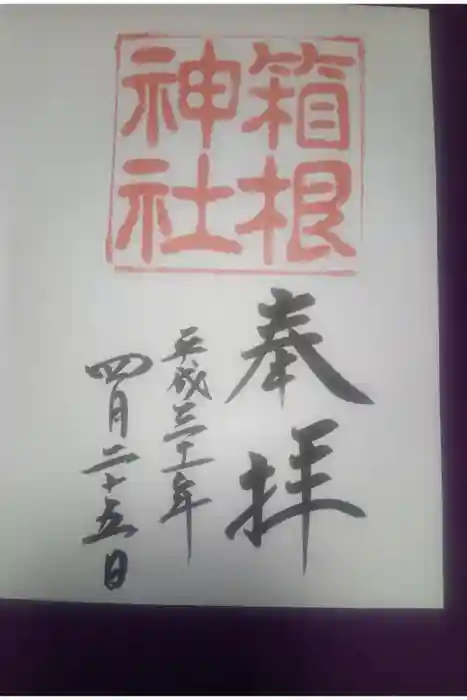 箱根
神社
奉拝
平成三十年
四月二十五日